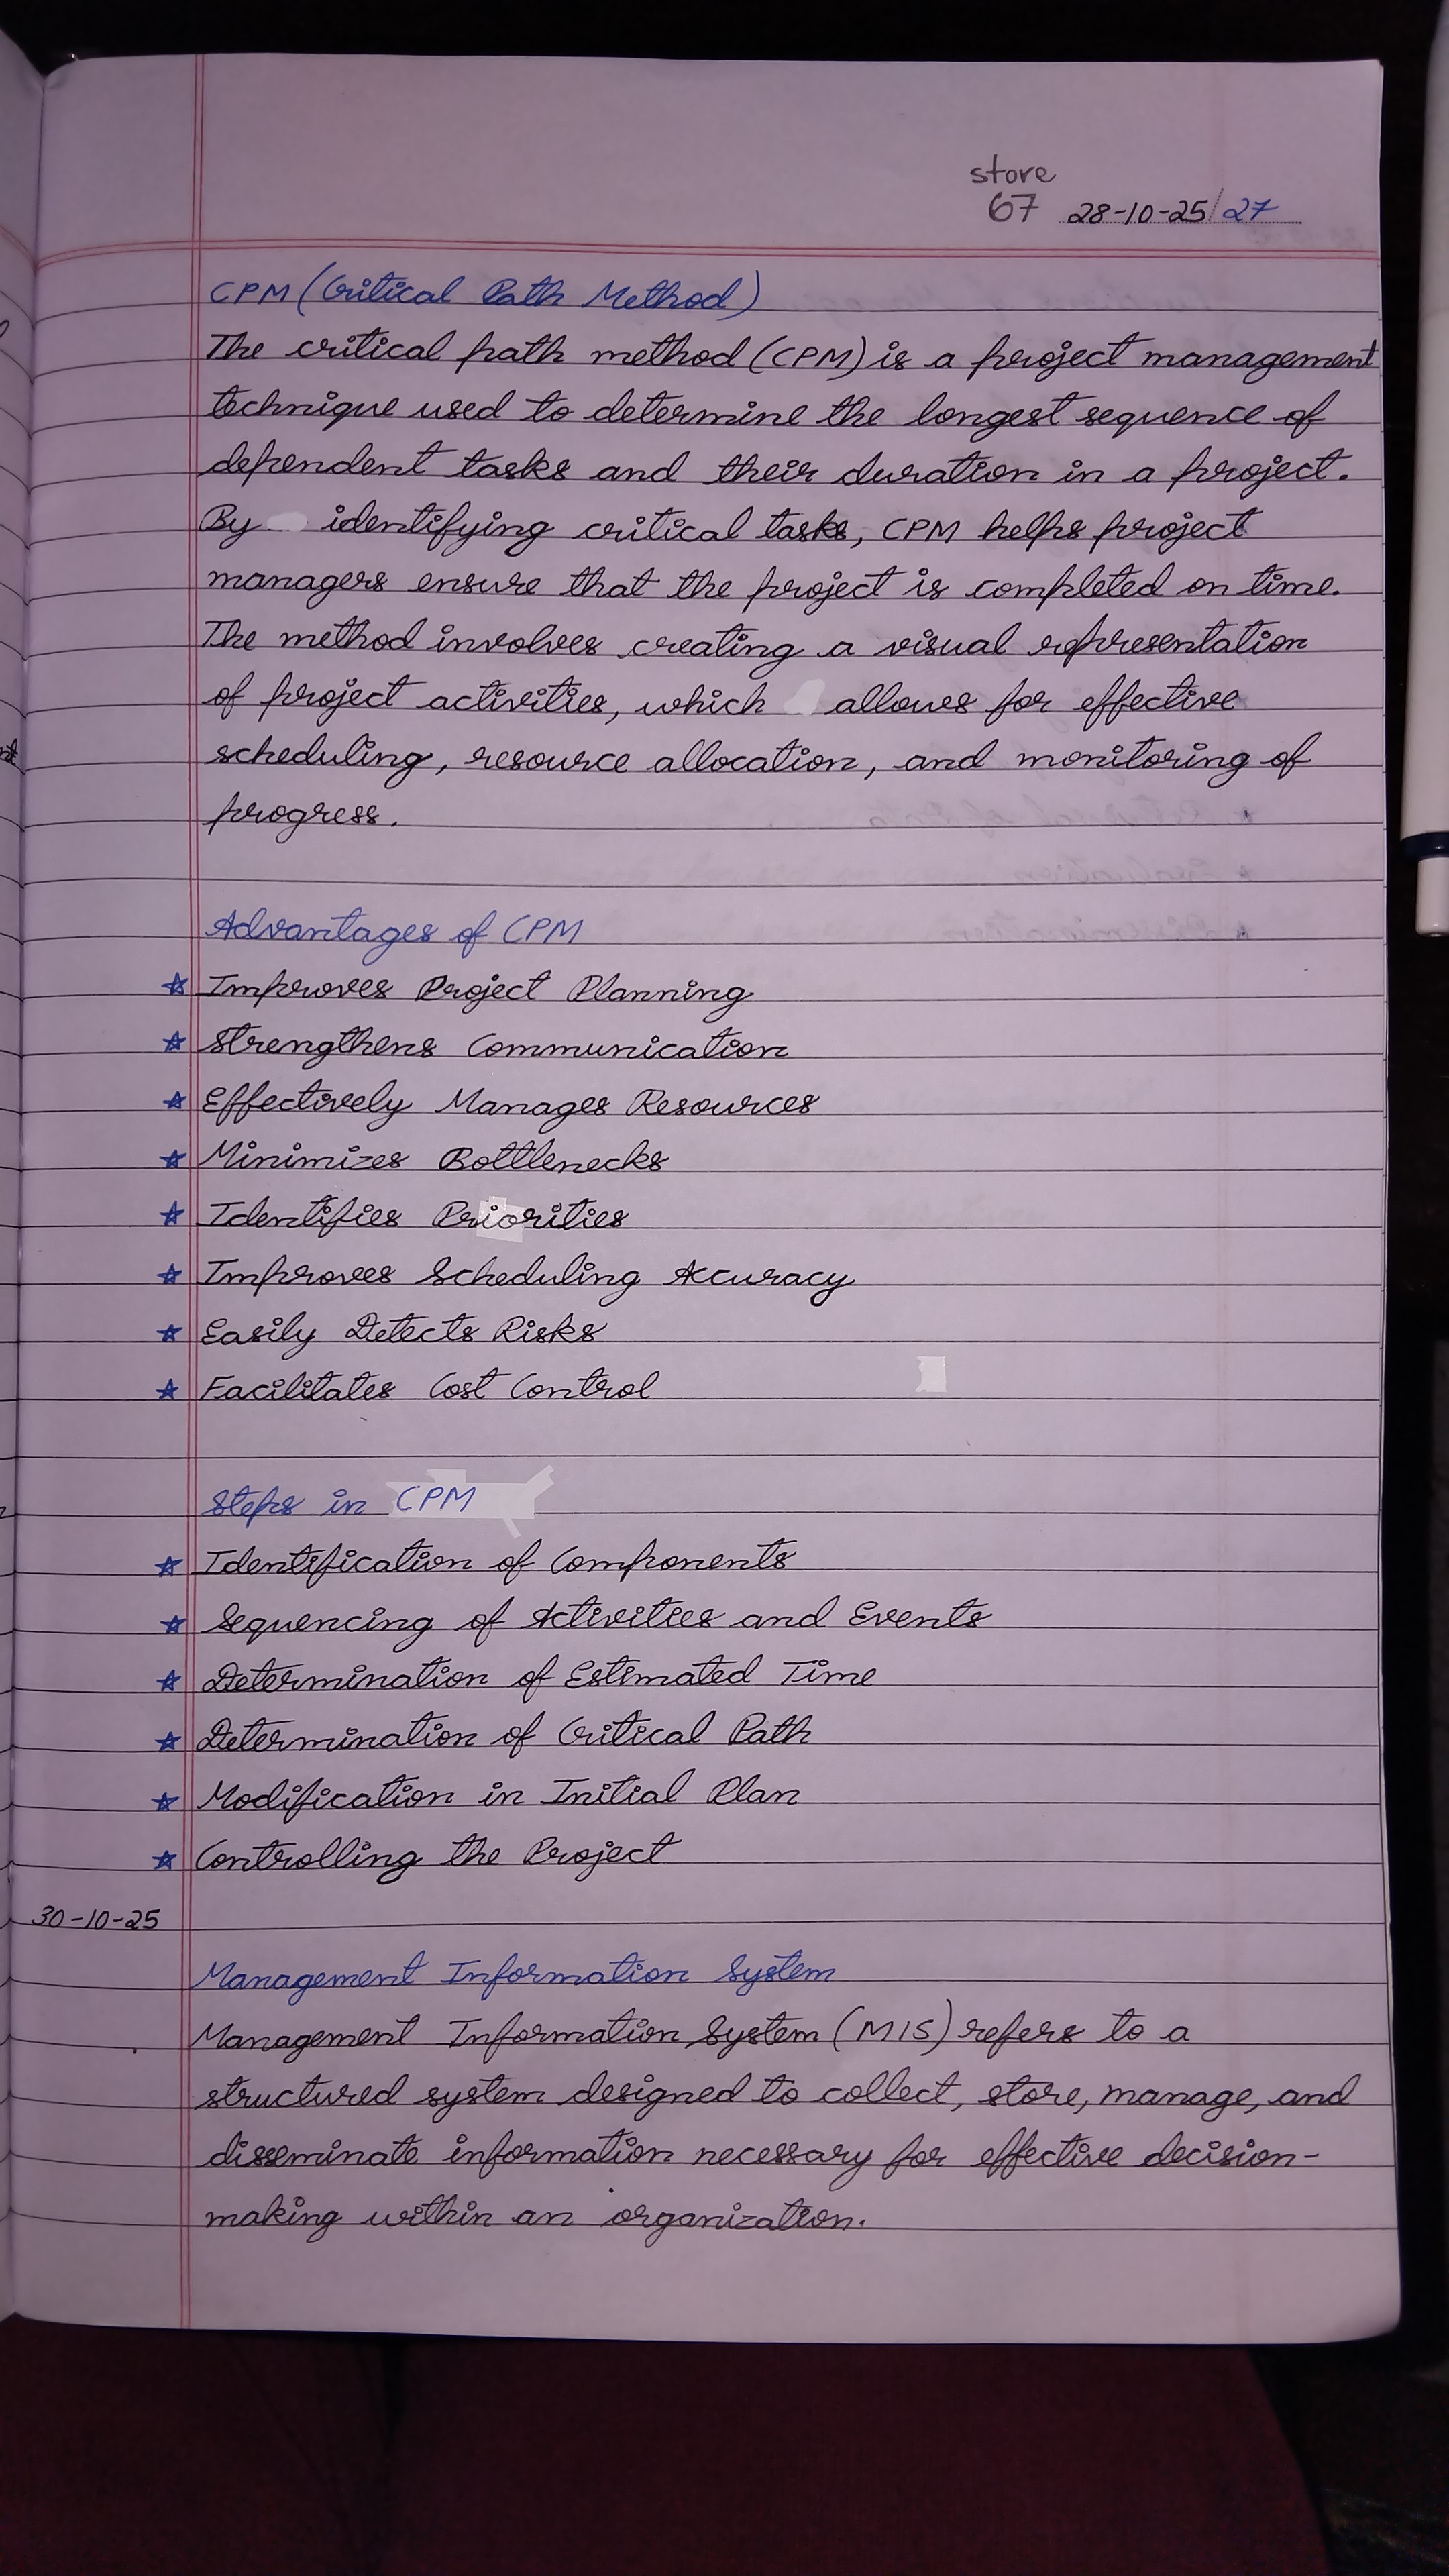 store
67 28-10-25/27
CPM (Critical Path Method)
The critical path method (CPM) is a project management
technique used to determine the longest sequence of
dependent tasks and their duration in a project.
By identifying critical tasks, CPM helps project
managers ensure that the project is completed on time.
The method involves creating a visual representation
of project activities, which allows for effective
scheduling, resource allocation, and monitoring of
progress.
Advantages of CPM
☆ Improves Project Planning
☆ Strengthens Communication
☆ Effectively Manages Resources
☆ Minimizes Bottlenecks
☆ Identifies Priorities
☆ Improves Scheduling Accuracy
☆ Easily Detects Risks
☆ Facilitates Cost Control
Steps in CPM
☆ Identification of Components
☆ Sequencing of Activities and Events
☆ Determination of Estimated Time
☆ Determination of Critical Path
☆ Modification in Initial Plan
☆ Controlling the Project
30-10-25
Management Information System
Management Information System (MIS) refers to a
structured system designed to collect, store, manage, and
disseminate information necessary for effective decision-
making within an organization.